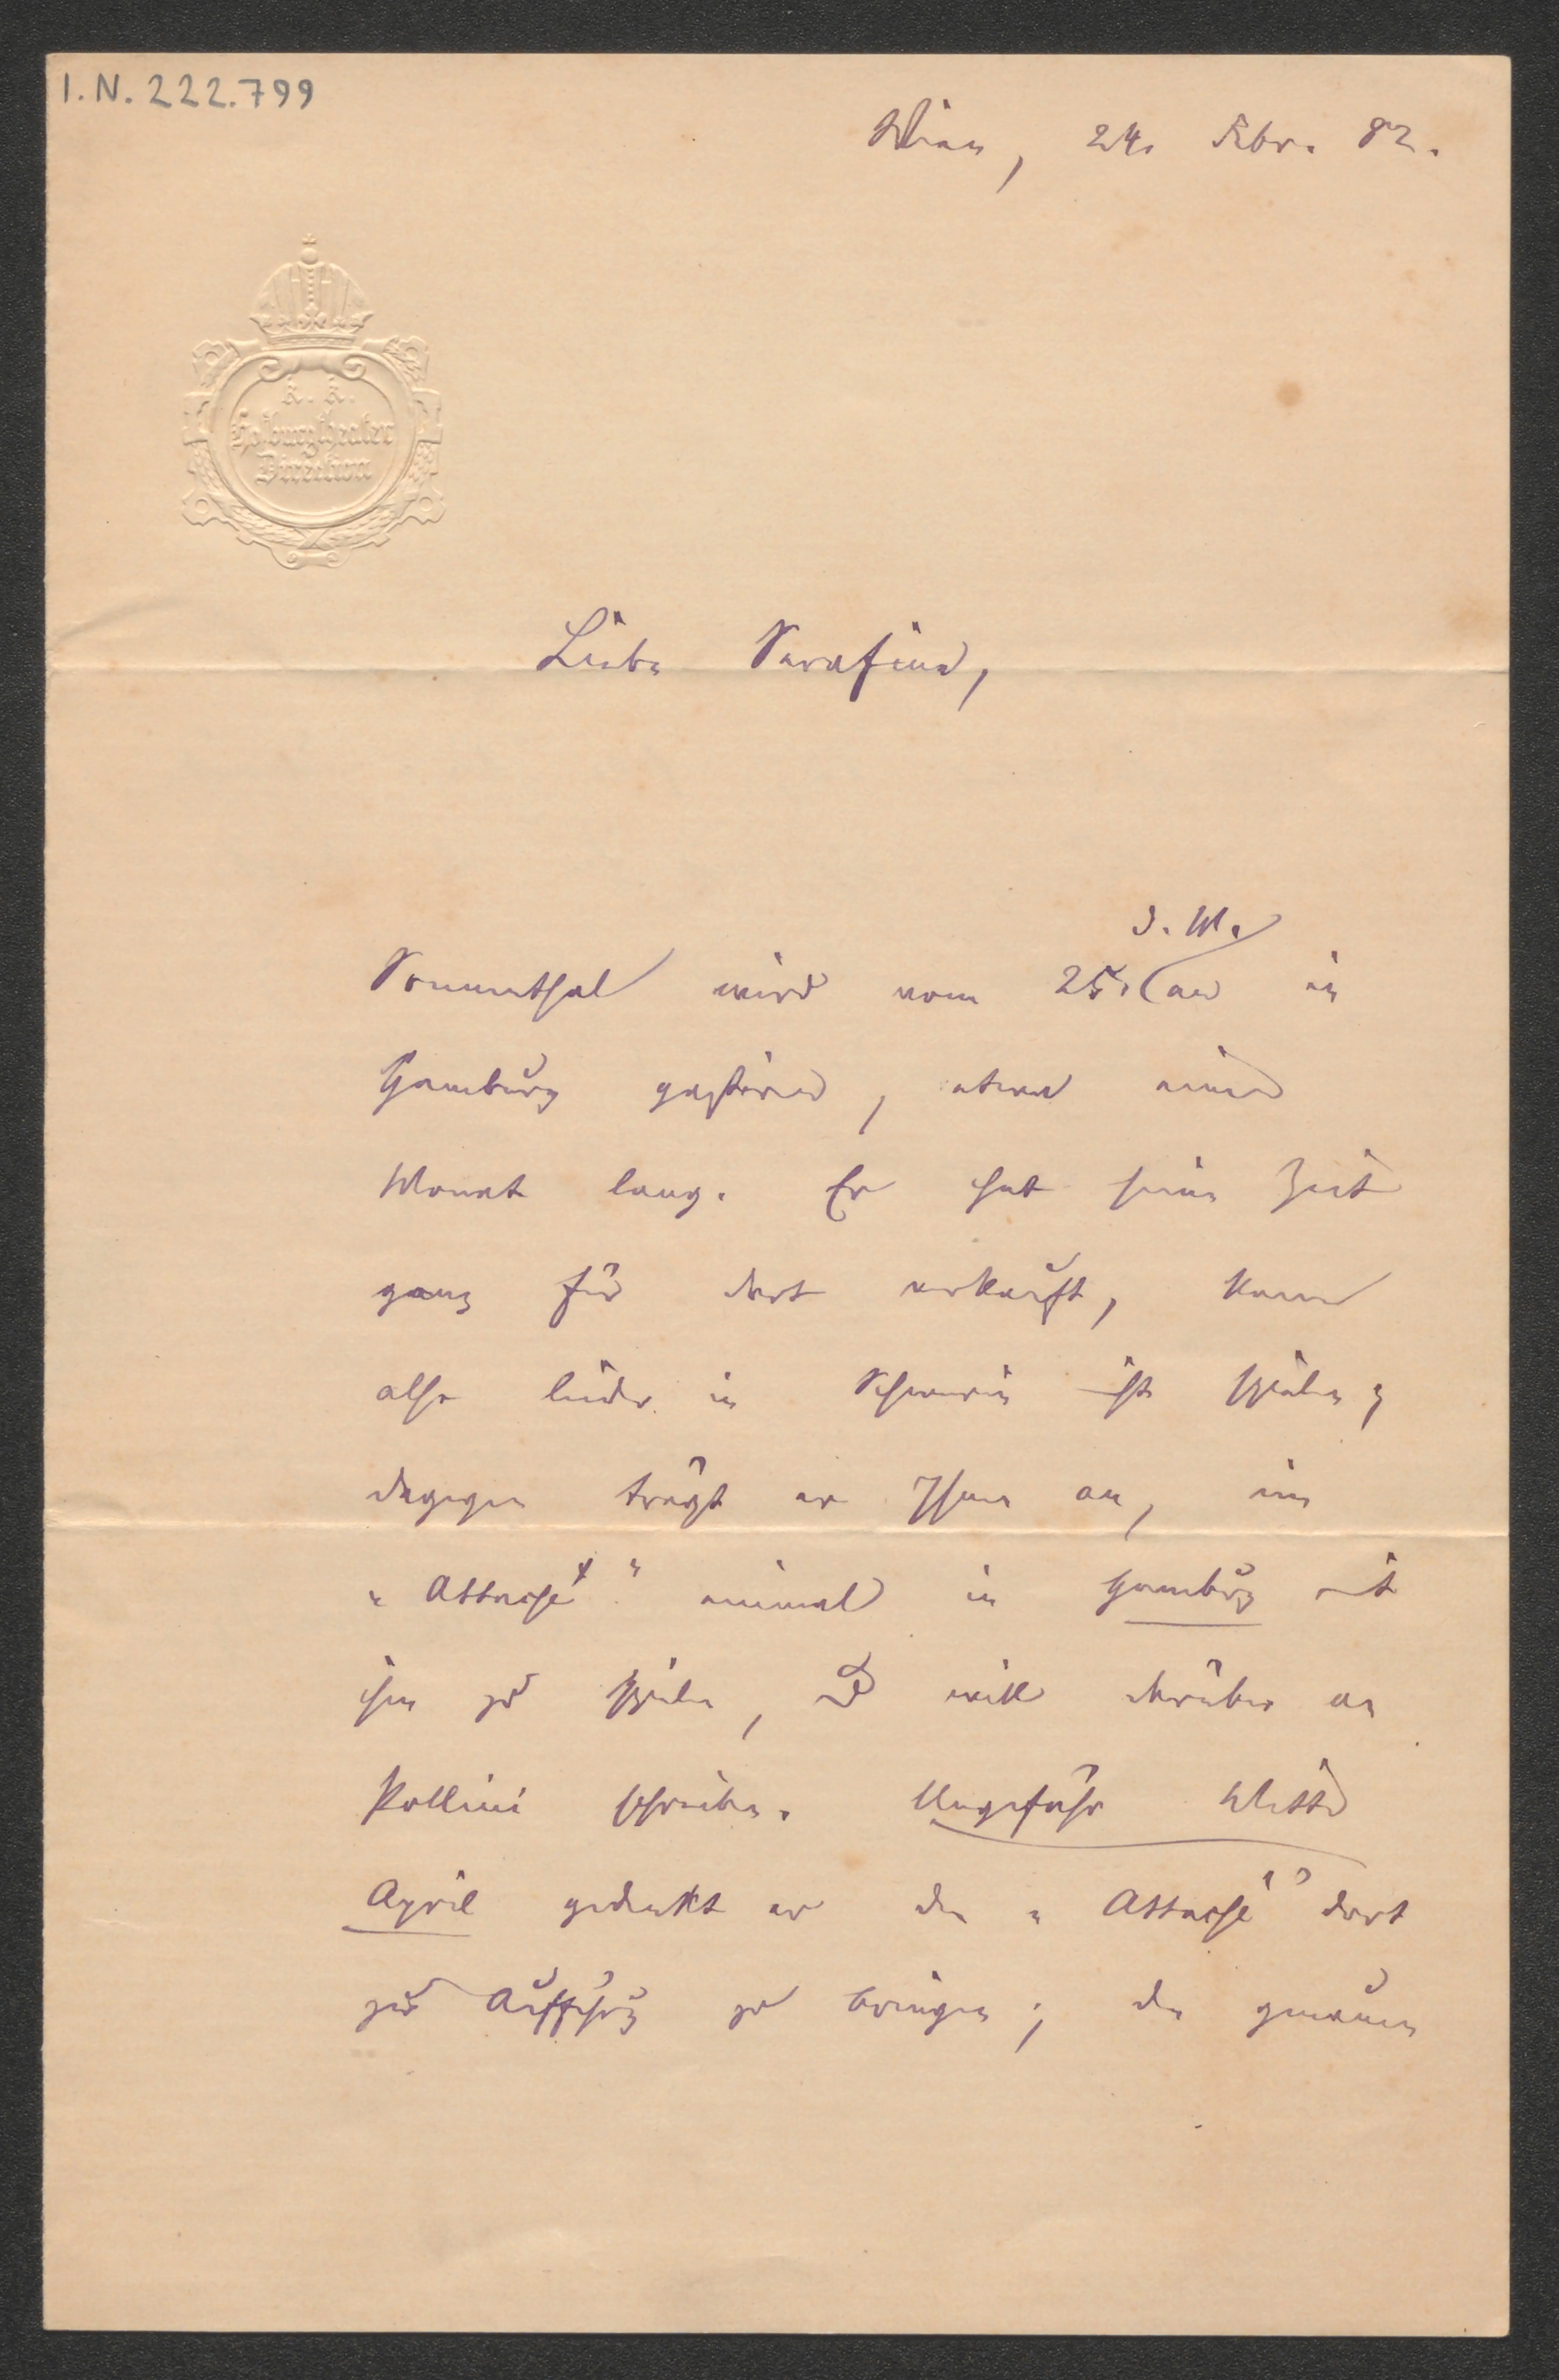 I.N. 222.799
Wien, 24. Febr. 82.
k. k.
Hofburgtheater
Direction
Liebe Serafine,
d. M.
Sonnenthal wird vom 25. an in
Hamburg gastiren, etwa einen
Monat lang. Er hat seine Zeit
ganz für dort verkauft, kann
also leider in Schwerin nicht spielen;
dagegen trägt er Ihnen an, im
„Attaché" einmal in Hamburg mit
ihm zu spielen, u. will darüber an
Pollini schreiben. Ungefähr Mitte
April gedenkt er den „Attaché" dort
zur Aufführung zu bringen; den genauen